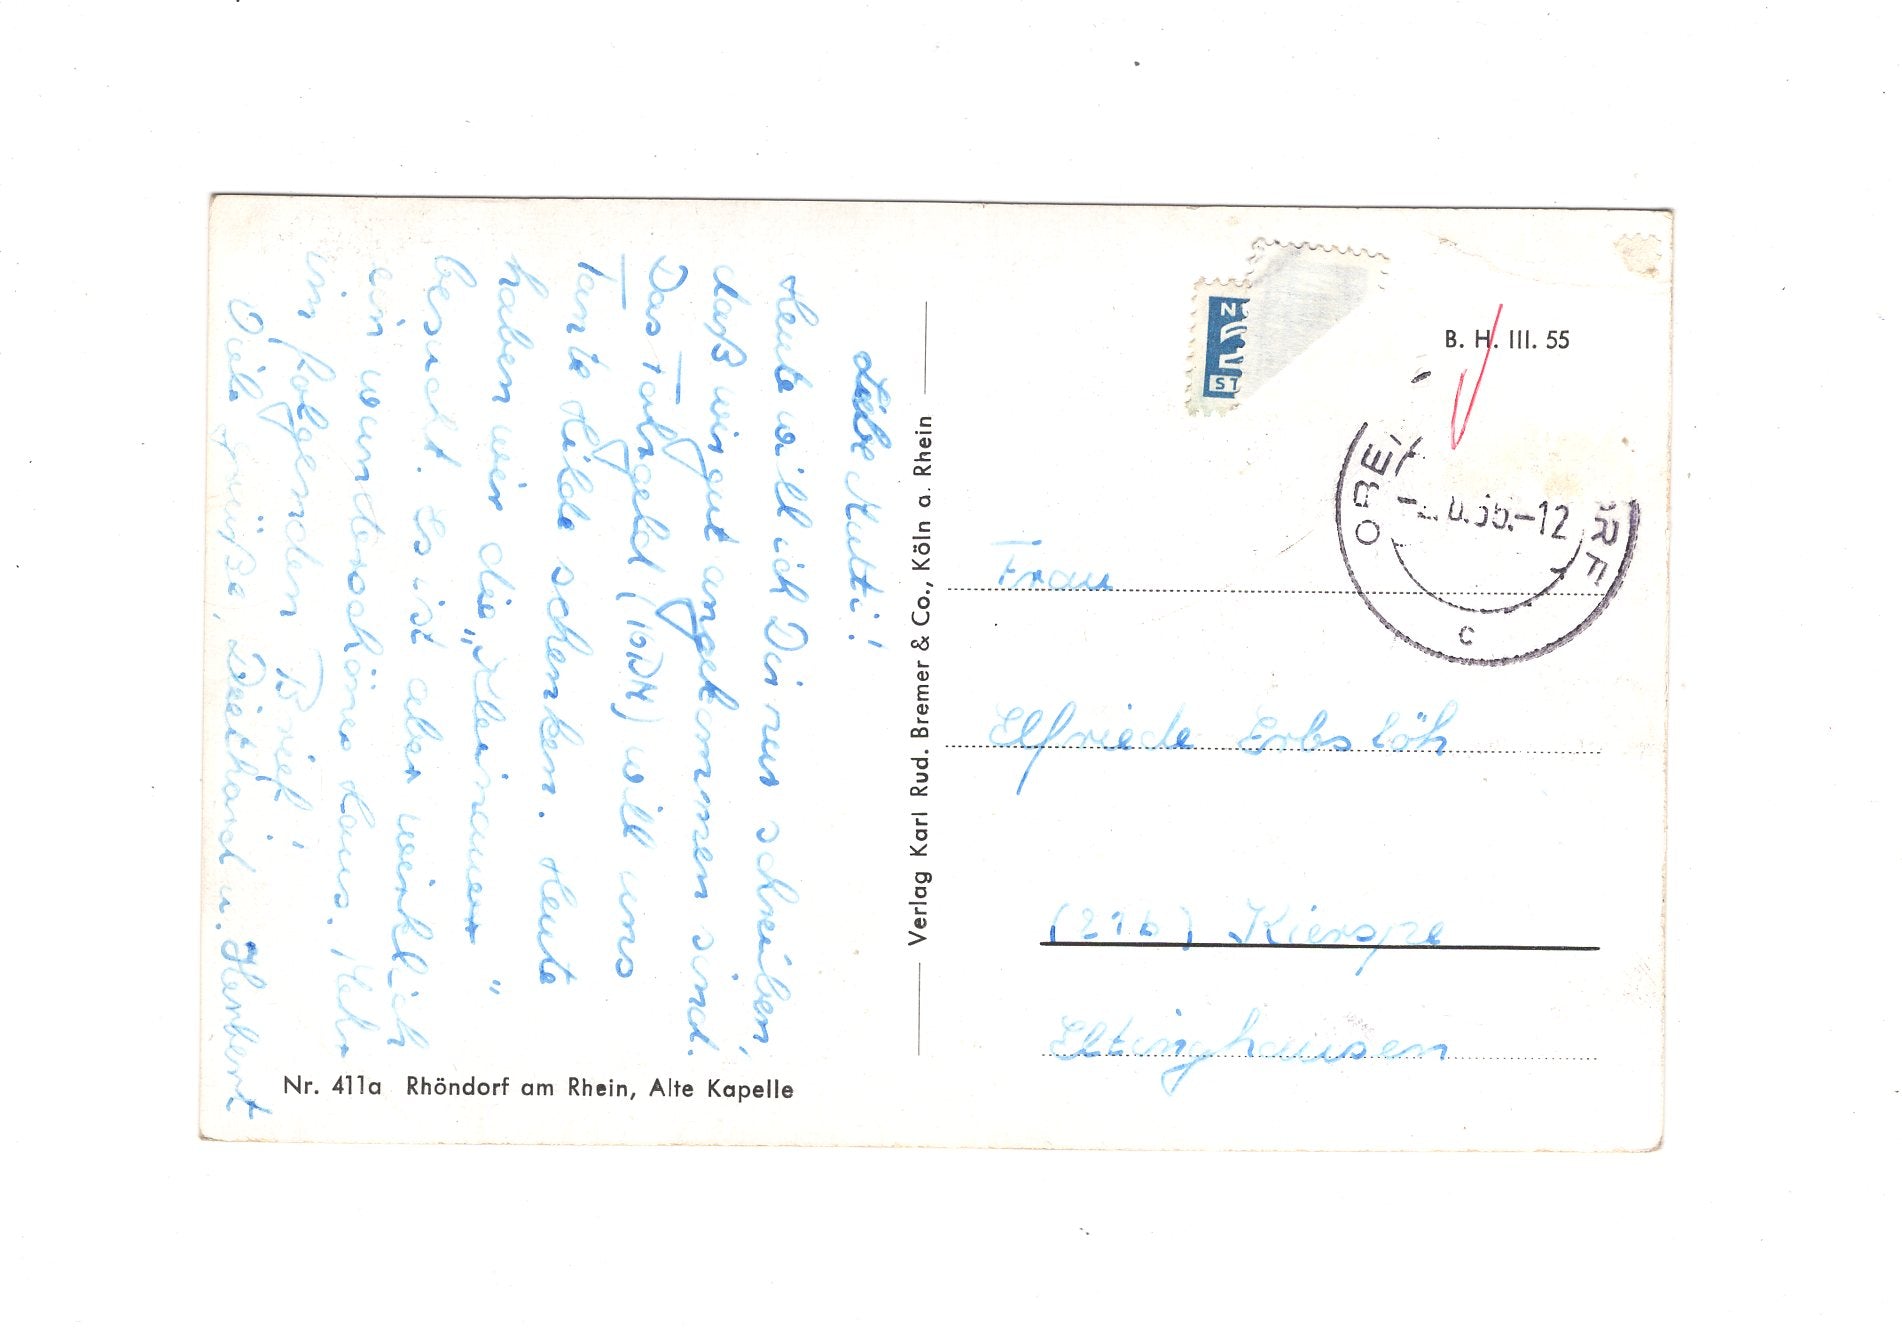 Liebe Mutti!
Heute will ich Dir nur schreiben,
daß wir gut angekommen sind.
Das Fahrgeld (10 DM) will uns
Tante Hilde schenken. Heute
haben wir die „Kleinauer“
besucht. Es ist aber wirklich
ein wunderschönes Haus. Mehr
im folgenden Brief!
Viele Grüße, Diethard u. Herbert
Nr. 411a Rhöndorf am Rhein, Alte Kapelle
Verlag Karl Rud. Bremer & Co., Köln a. Rhein
N
ST
B. H. III. 55
OBE RF
-12
c
Frau
Elfriede Erbslöh
(21b) Kierspe
Eltinghausen